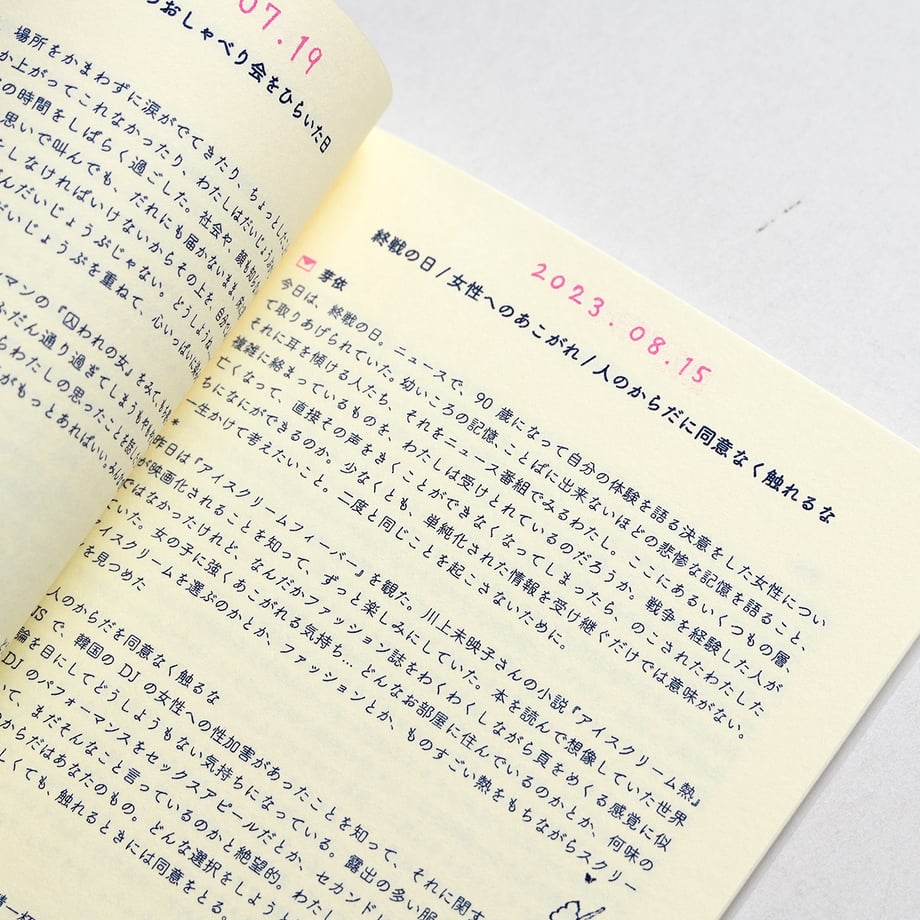 07.19
おしゃべり会をひらいた日
場所をかまわずに涙がでてきたり、ちょっとし
か上がってこれなかったり、わたしはだいじょう
の時間をしばらく過ごした。社会や、顔も知
思いで叫んでも、だれにも届かないまま、
しなければいけないからその上を、自分
だいじょうぶじゃない。どうしよう
いじょうぶを重ねて、心いっぱいに
マンの『囚われの女』をみて、
ふだん通り過ぎてしまう
らわたしの思ったことを話し
がもっとあればいい。
2023.08.15
終戦の日/女性へのあこがれ/人のからだに同意なく触れるな
芽依
今日は、終戦の日。ニュースで、90歳になって自分の体験を語る決意をした女性につい
て取りあげられていた。幼いころの記憶、ことばに出来ないほどの悲惨な記憶を語ること、
それに耳を傾ける人たち、それをニュース番組でみるわたし。ここにあるいくつもの層、
複雑に絡まっているものを、わたしは受けとれているのだろうか。戦争を経験した人が
亡くなって、直接その声をきくことができなくなってしまったら、のこされたわたした
ちになにができるのか。少なくとも、単純化された情報を受け継ぐだけでは意味がない。
一生かけて考えたいこと。二度と同じことを起こさないために。
*
昨日は『アイスクリームフィーバー』を観た。川上未映子さんの小説『アイスクリーム熱』
が映画化されることを知って、ずっと楽しみにしていた。本を読んで想像していた世界
ではなかったけれど、なんだかファッション誌をわくわくしながら頁をめくる感覚に似
ていた。女の子に強くあこがれる気持ち…どんなお部屋に住んでいるのかとか、何味の
アイスクリームを選ぶのかとか、ファッションとか、ものすごい熱をもちながらスクリー
を見つめた
人のからだを同意なく触るな
NSで、韓国のDJの女性への性加害があったことを知って、それに関す
論を目にしてどうしようもない気持ちになっている。露出の多い服
DJのパフォーマンスをセックスアピールだとか、セカンドレ
て、まだそんなこと言っているのかと絶望的。わたし
からだはあなたのもの。どんな選択をしよう
しくても、触れるときには同意をとる。